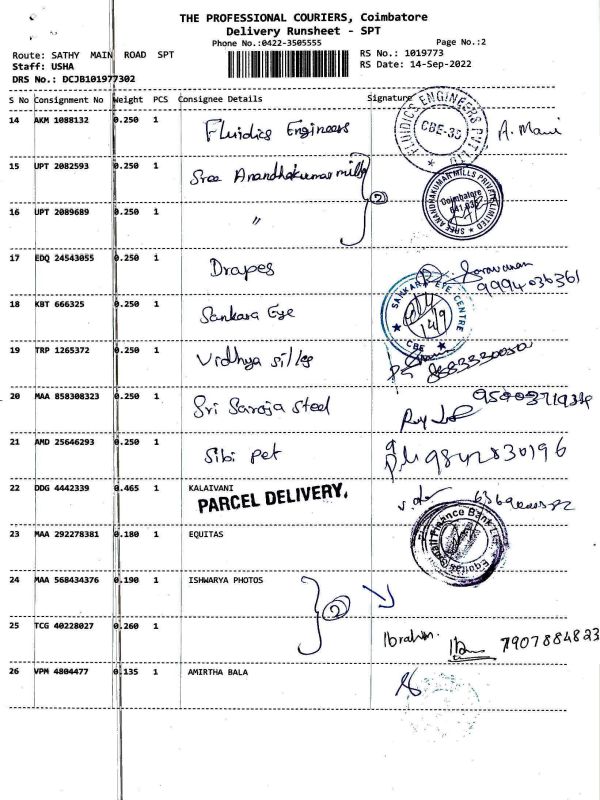 THE PROFESSIONAL COURIERS, Coimbatore
Delivery Runsheet - SPT
Phone No.:0422-3505555 Page No.:2
Route: SATHY MAIN ROAD SPT RS No.: 1019773
Staff: USHA RS Date: 14-Sep-2022
DRS No.: DCJB101977302
S No Consignment No Weight PCS Consignee Details Signature
14 AKM 1088132 0.250 1 Fluidics Engineers FLUIDICS ENGINEERS PVT CBE-35 A. Mani
15 UPT 2082593 0.250 1 Sree Anandhakumar mills
16 UPT 2089689 0.250 1 " 2 SREE ANANDHAKUMAR MILLS PRIVATE LIMITED Coimbatore
17 EDQ 24543055 0.250 1 Drapes Saravanan
9994036361
18 KBT 666325 0.250 1 Sankara Eye SANKARA EYE CENTRE CBE 14/9
19 TRP 1265372 0.250 1 Vidhya silks
20 MAA 858308323 0.250 1 Sri Saroja steel
21 AMD 25646293 0.250 1 Sibi pet 9842830196
22 DDG 4442339 0.465 1 KALAIVANI
PARCEL DELIVERY.
23 MAA 292278381 0.180 1 EQUITAS Equitas Small Finance Bank Ltd
24 MAA 568434376 0.190 1 ISHWARYA PHOTOS 2
25 TCG 40228027 0.260 1 Ibrahim. 7907884823
26 VPM 4804477 0.135 1 AMIRTHA BALA